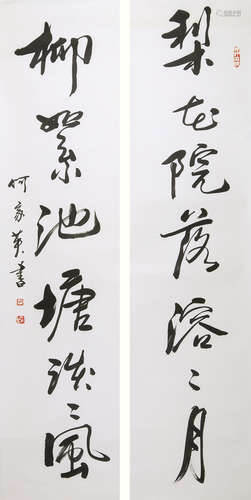 梨花院落溶〻月
柳絮池塘淡〻風
何家英書